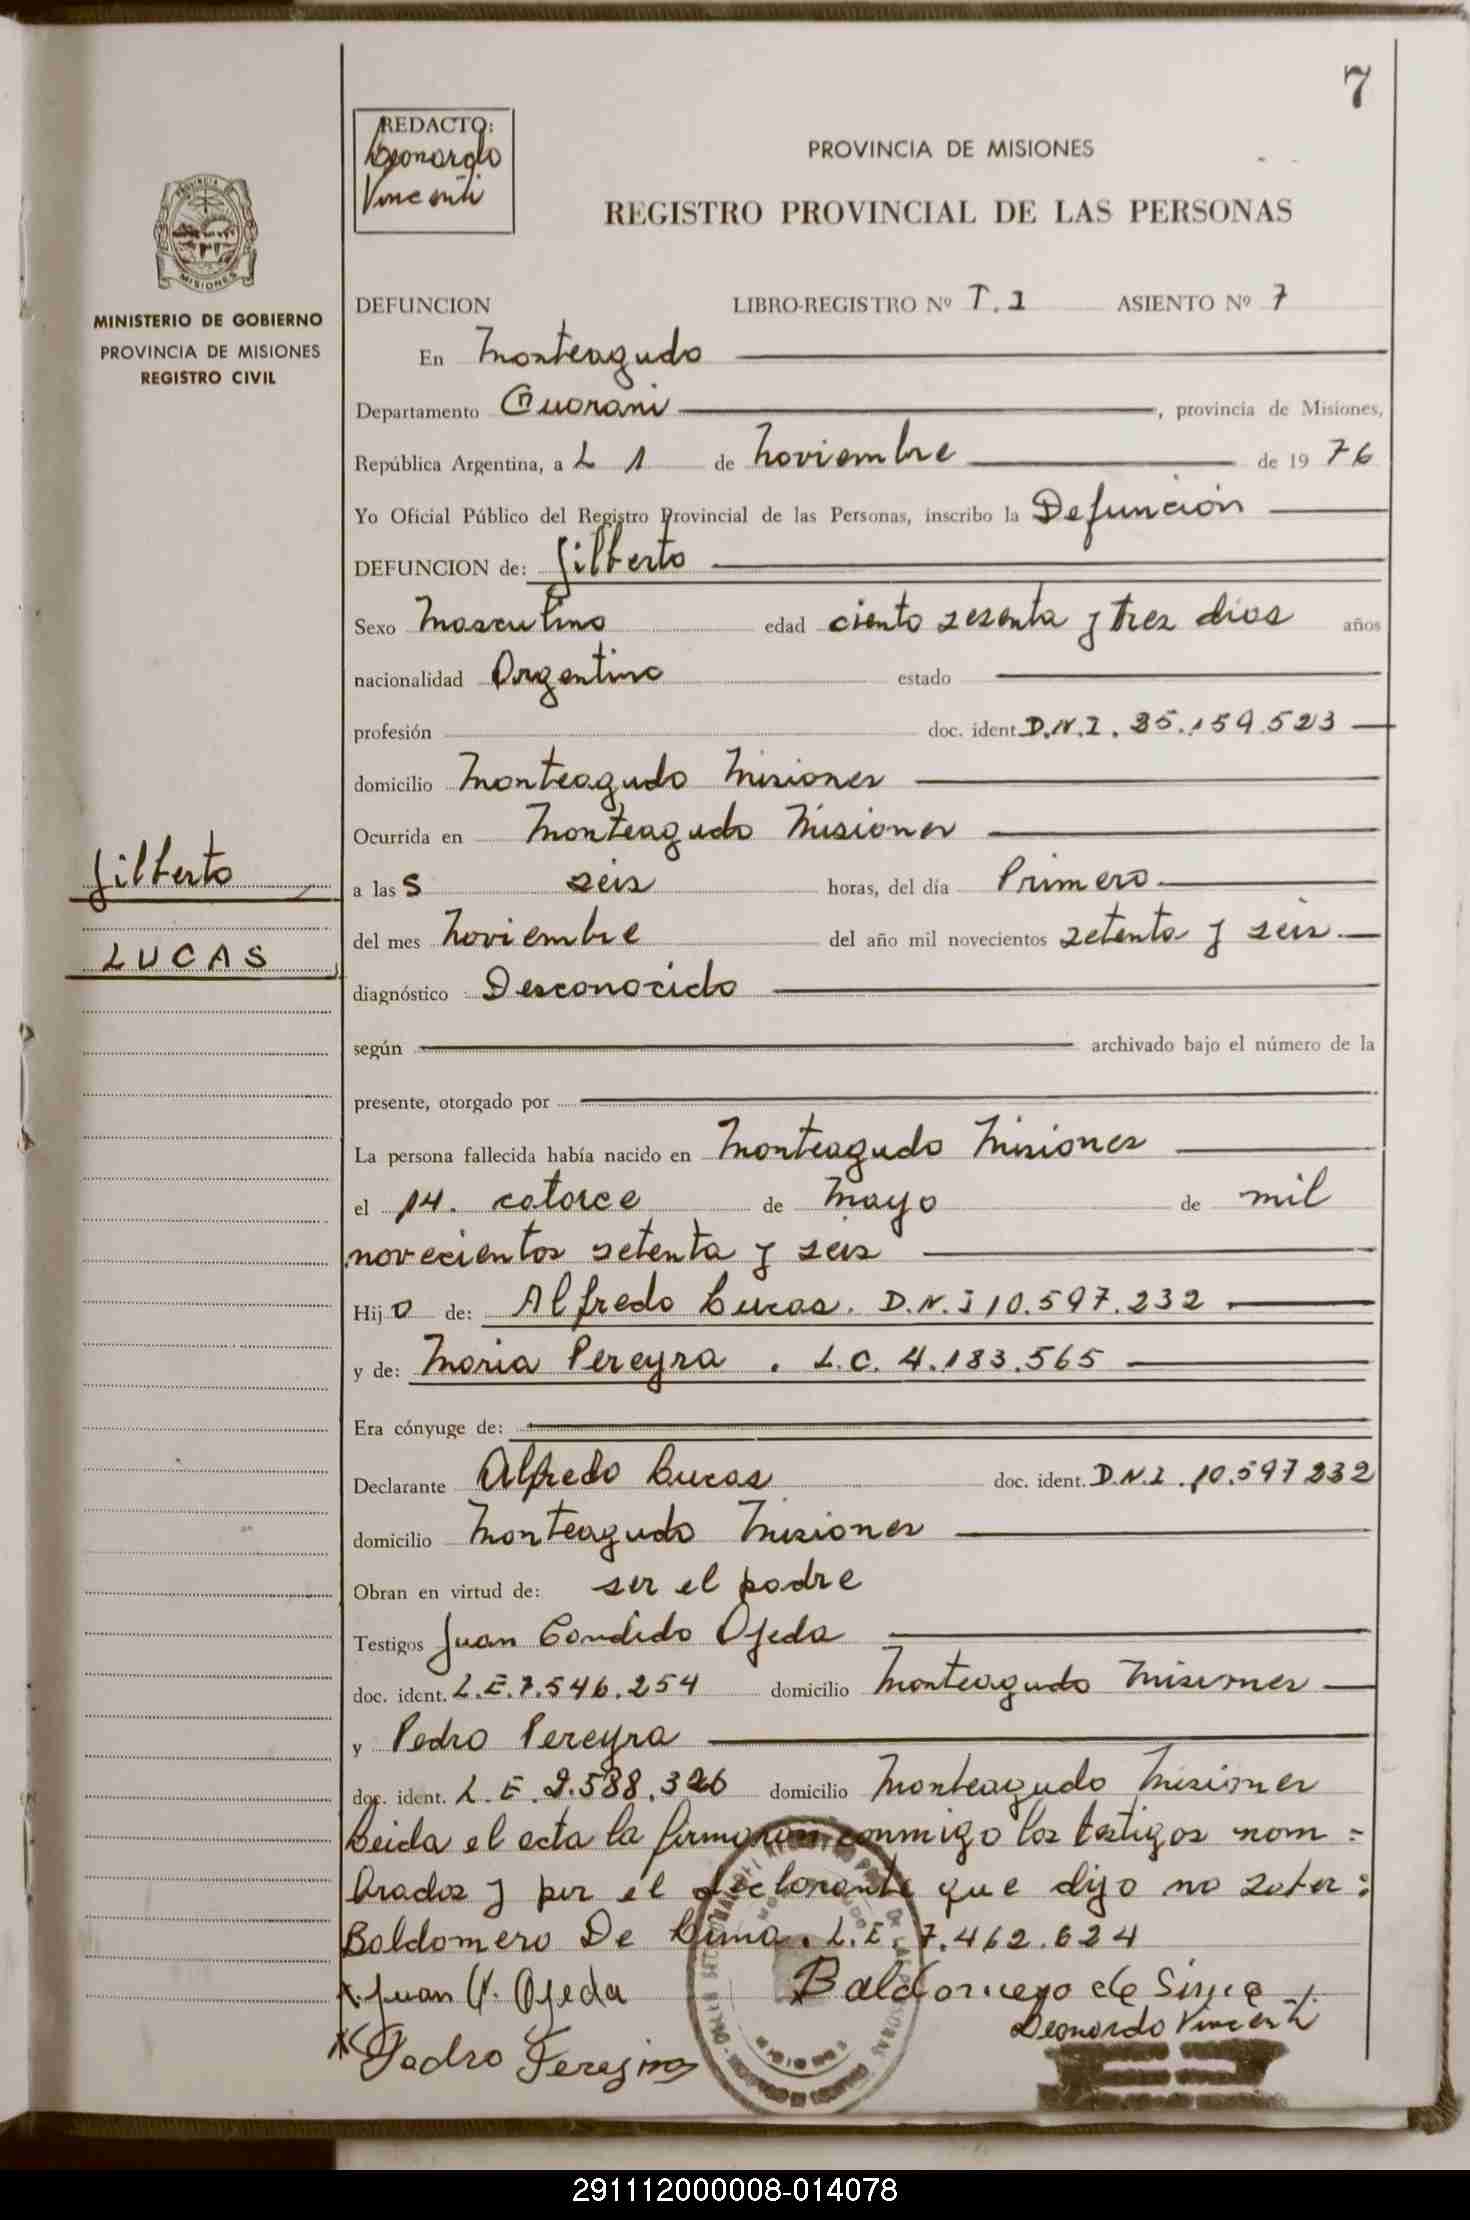 7
REDACTO:
Leonardo
Vincenti
PROVINCIA DE MISIONES
REGISTRO PROVINCIAL DE LAS PERSONAS
MISIONES
MINISTERIO DE GOBIERNO
PROVINCIA DE MISIONES
REGISTRO CIVIL
DEFUNCION LIBRO-REGISTRO Nº T.1 ASIENTO Nº 7
En Monteagudo
Departamento Guarani, provincia de Misiones,
República Argentina, a L 1 de Noviembre de 1976
Yo Oficial Público del Registro Provincial de las Personas, inscribo la Defunción
DEFUNCION de: Gilberto
Sexo Masculino edad ciento sesenta y tres dias años
nacionalidad Argentino estado
profesión doc. ident. D.N.I. 25.159.523
domicilio Monteagudo Misiones
Ocurrida en Monteagudo Misiones
Gilberto
LUCAS
a las S seis horas, del día Primero
del mes Noviembre del año mil novecientos setenta y seis
diagnóstico Desconocido
según archivado bajo el número de la
presente, otorgado por
La persona fallecida había nacido en Monteagudo Misiones
el 14. catorce de Mayo de mil
novecientos setenta y seis
Hijo de: Alfredo Lucas. D.N.I 10.597.232
y de: Maria Pereyra . L.C. 4.183.565
Era cónyuge de:
Declarante Alfredo Lucas doc. ident. D.N.I. 10.597232
domicilio Monteagudo Misiones
Obran en virtud de: ser el padre
Testigos Juan Condido Ojeda
doc. ident. L.E. 7.546.254 domicilio Monteagudo Misiones
y Pedro Pereyra
doc. ident. L.E. 2.588.326 domicilio Monteagudo Misiones
Leida el acta la firmaron conmigo los testigos nom=
brados y por el declarante que dijo no saber:
Baldomero De Lima. L.E. 7.462.624
x. Juan C. Ojeda Baldomero de Sima
Leonardo Vincenti
x Pedro Pereyra
291112000008-014078